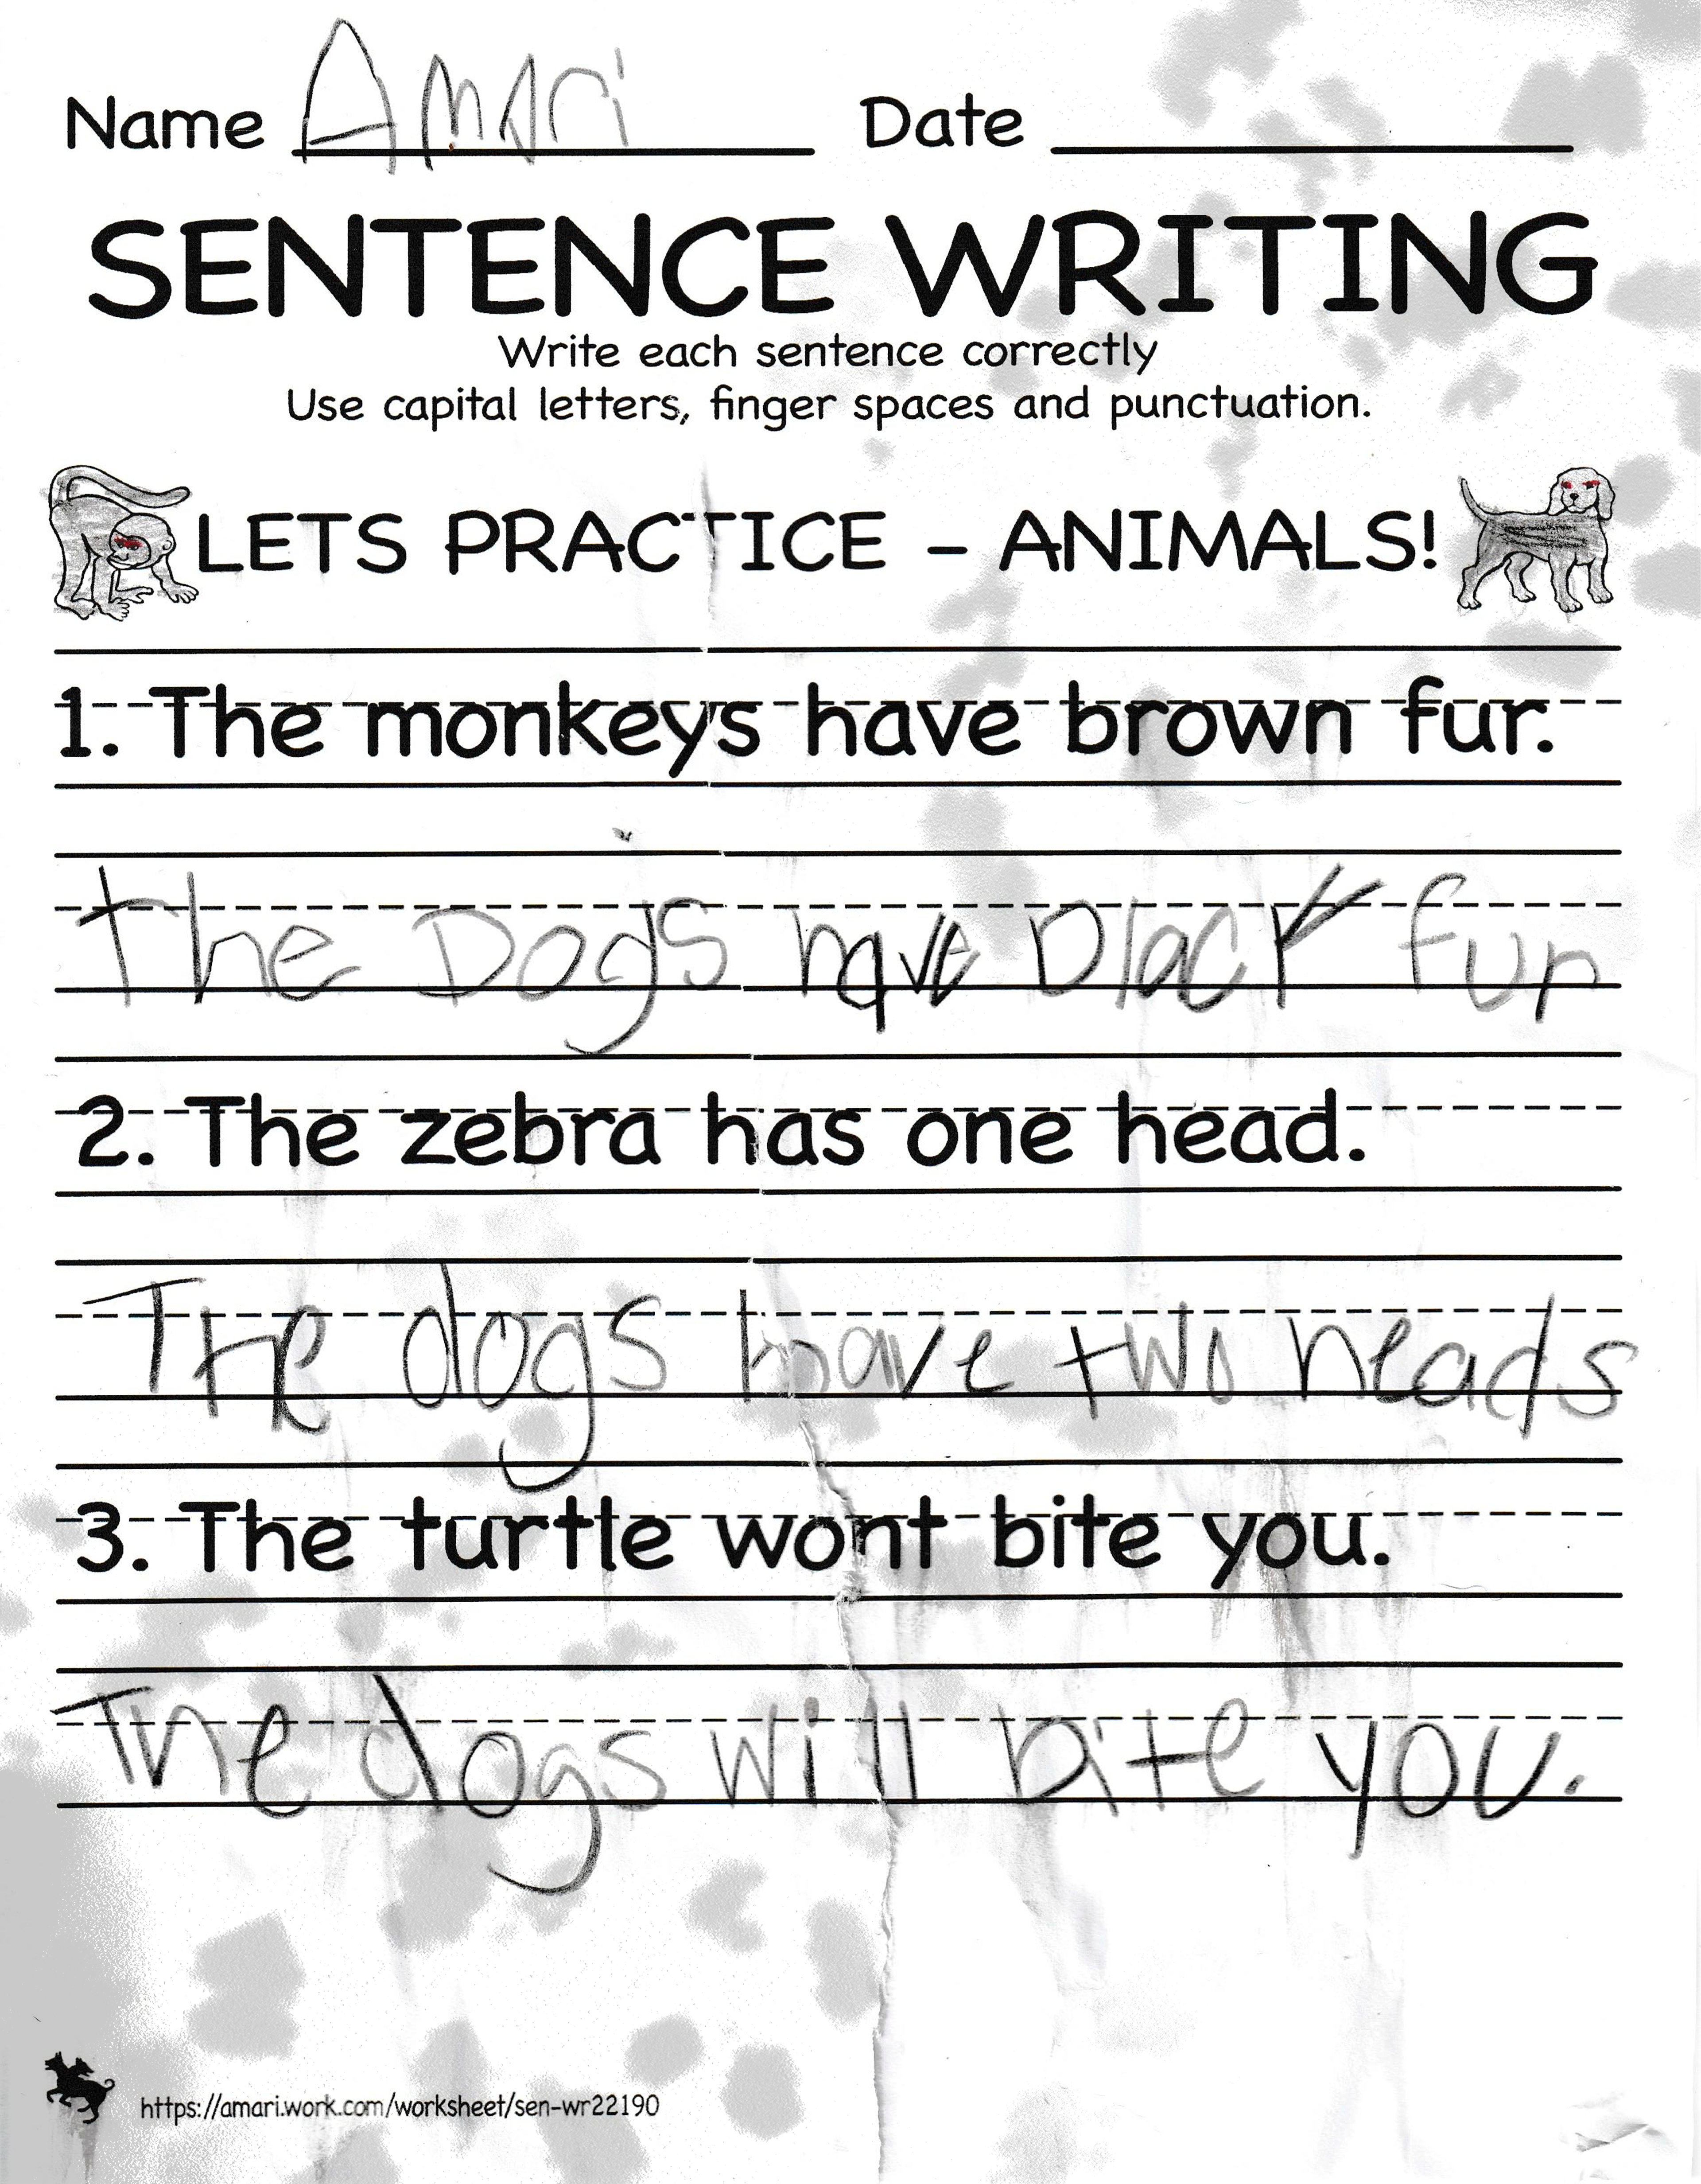 Name Amari Date
SENTENCE WRITING
Write each sentence correctly
Use capital letters, finger spaces and punctuation.
LETS PRACTICE – ANIMALS!
1. The monkeys have brown fur.
The Dogs have black fur
2. The zebra has one head.
The dogs have two heads
3. The turtle wont bite you.
The dogs will bite you.
https://amari.work.com/worksheet/sen-wr22190